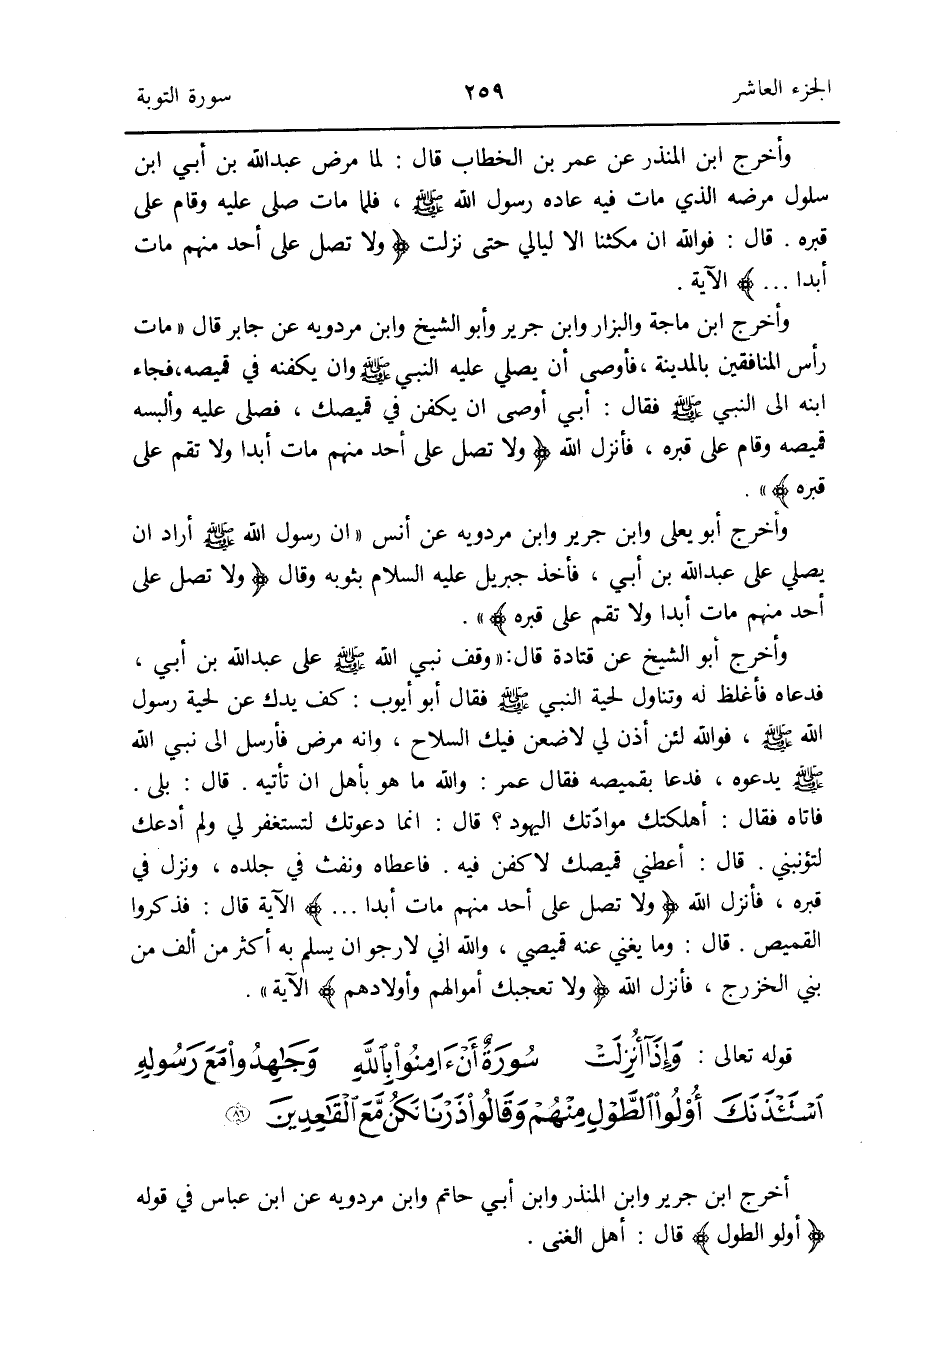 الجزء العاشر ٢٥٩ سورة التوبة
وأخرج ابن المنذر عن عمر بن الخطاب قال : لما مرض عبدالله بن أبي ابن
سلول مرضه الذي مات فيه عاده رسول الله ﷺ ، فلما مات صلى عليه وقام على
قبره . قال : فوالله ان مكثنا الا ليالي حتى نزلت ﴿ ولا تصل على أحد منهم مات
أبدا ... ﴾ الآية .
وأخرج ابن ماجة والبزار وابن جرير وأبو الشيخ وابن مردويه عن جابر قال «مات
رأس المنافقين بالمدينة ،فأوصى أن يصلي عليه النبي ﷺ وان يكفنه في قميصه،فجاء
ابنه الى النبي ﷺ فقال : أبي أوصى ان يكفن في قميصك ، فصلى عليه وألبسه
قميصه وقام على قبره ، فأنزل الله ﴿ ولا تصل على أحد منهم مات أبدا ولا تقم على
قبره ﴾» .
وأخرج أبو يعلى وابن جرير وابن مردويه عن أنس «ان رسول الله ﷺ أراد ان
يصلي على عبدالله بن أبي ، فأخذ جبريل عليه السلام بثوبه وقال ﴿ ولا تصل على
أحد منهم مات أبدا ولا تقم على قبره ﴾» .
وأخرج أبو الشيخ عن قتادة قال:«وقف نبي الله ﷺ على عبدالله بن أبي ،
فدعاه فأغلظ له وتناول لحية النبي ﷺ فقال أبو أيوب : كف يدك عن لحية رسول
الله ﷺ ، فوالله لئن أذن لي لاضعن فيك السلاح ، وانه مرض فأرسل الى نبي الله
ﷺ يدعوه ، فدعا بقميصه فقال عمر : والله ما هو بأهل ان تأتيه . قال : بلى .
فاتاه فقال : أهلكتك موادّتك اليهود ؟ قال : انما دعوتك لتستغفر لي ولم أدعك
لتؤنبني . قال : أعطني قميصك لاكفن فيه . فاعطاه ونفث في جلده ، ونزل في
قبره ، فأنزل الله ﴿ ولا تصل على أحد منهم مات أبدا ... ﴾ الآية قال : فذكروا
القميص . قال : وما يغني عنه قميصي ، والله اني لارجو ان يسلم به أكثر من ألف من
بني الخزرج ، فأنزل الله ﴿ ولا تعجبك أموالهم وأولادهم ﴾ الآية» .
قوله تعالى : وَإِذَآ أُنزِلَتْ سُورَةٌ أَنْ ءَامِنُوا۟ بِٱللَّهِ وَجَـٰهِدُوا۟ مَعَ رَسُولِهِ
ٱسْتَـْٔذَنَكَ أُو۟لُوا۟ ٱلطَّوْلِ مِنْهُمْ وَقَالُوا۟ ذَرْنَا نَكُن مَّعَ ٱلْقَـٰعِدِينَ ﴿٨٦﴾
أخرج ابن جرير وابن المنذر وابن أبي حاتم وابن مردويه عن ابن عباس في قوله
﴿ أولو الطول ﴾ قال : أهل الغنى .